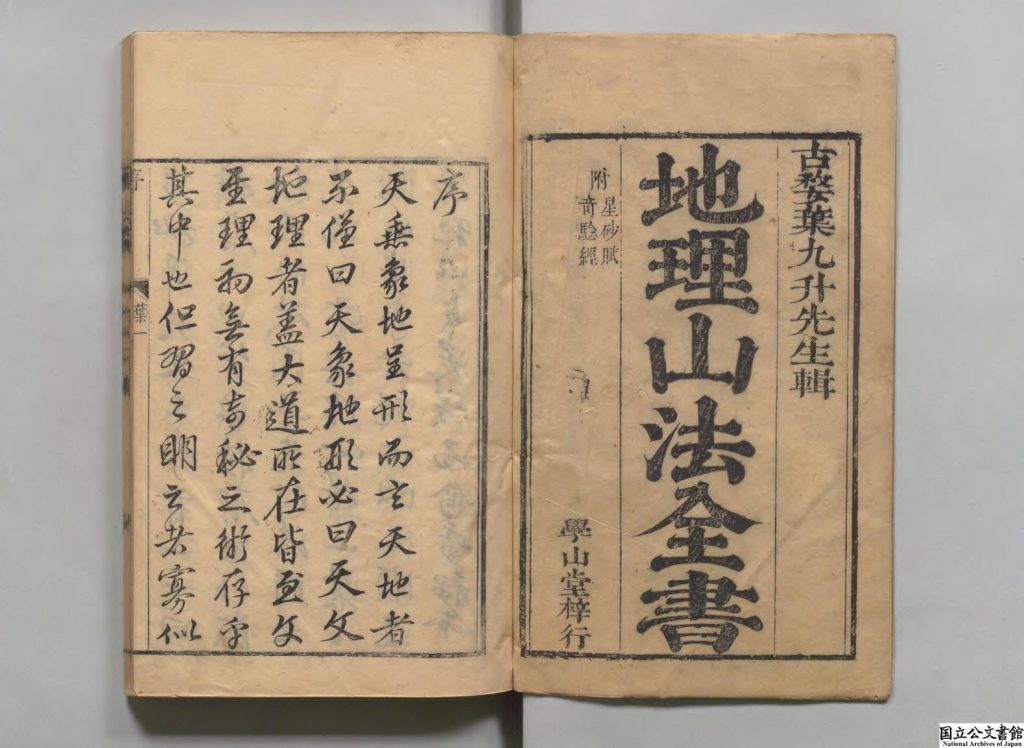 古婺葉九升先生輯
地理山法全書
附
星砂賦
竒騐經
學山堂梓行
序
天垂象地呈形而言天地者
不僅曰天象地形必曰天文
地理者蓋大道所在皆至文
至理初無有奇秘之術存乎
其中也但習之明之者寡似
序
葉一
国立公文書館
National Archives of Japan